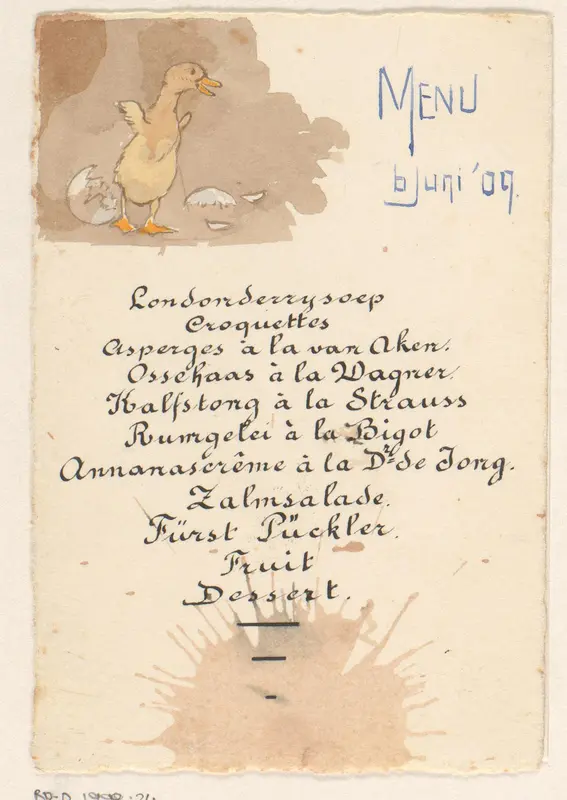 MENU
6 Juni '09.
Londonderrysoep
Croquettes
Asperges à la van Aken.
Ossehaas à la Wagner.
Kalfstong à la Strauss
Rumgelei à la Bigot
Annanascrême à la Dr. de Jong.
Zalmsalade.
Fürst Pückler.
Fruit
Dessert.